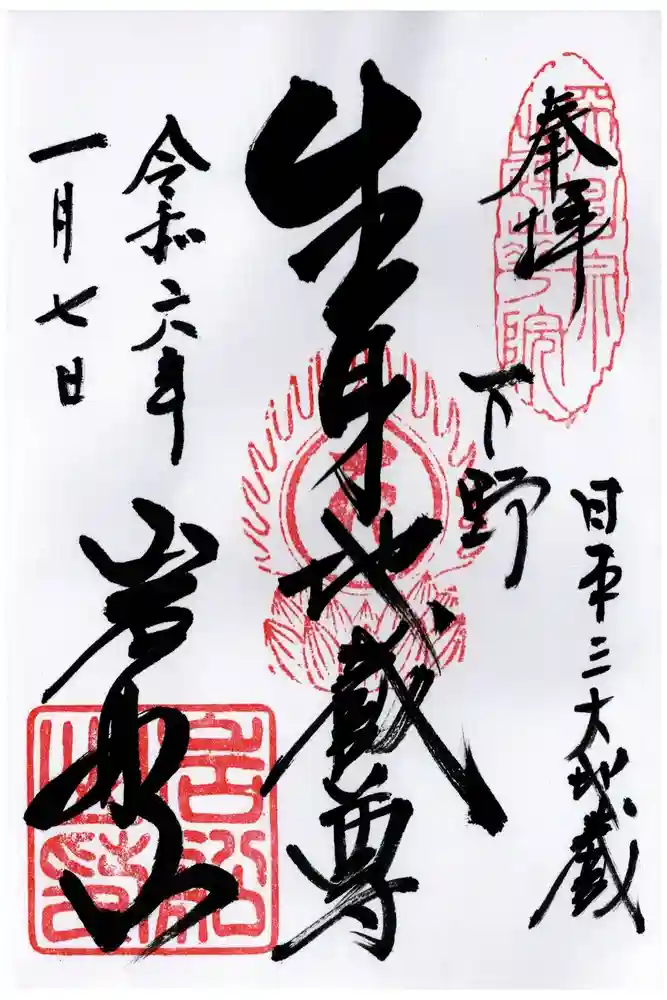 奉拝
日本三大地蔵
下野
生身地蔵尊
令和六年
一月七日
岩船山